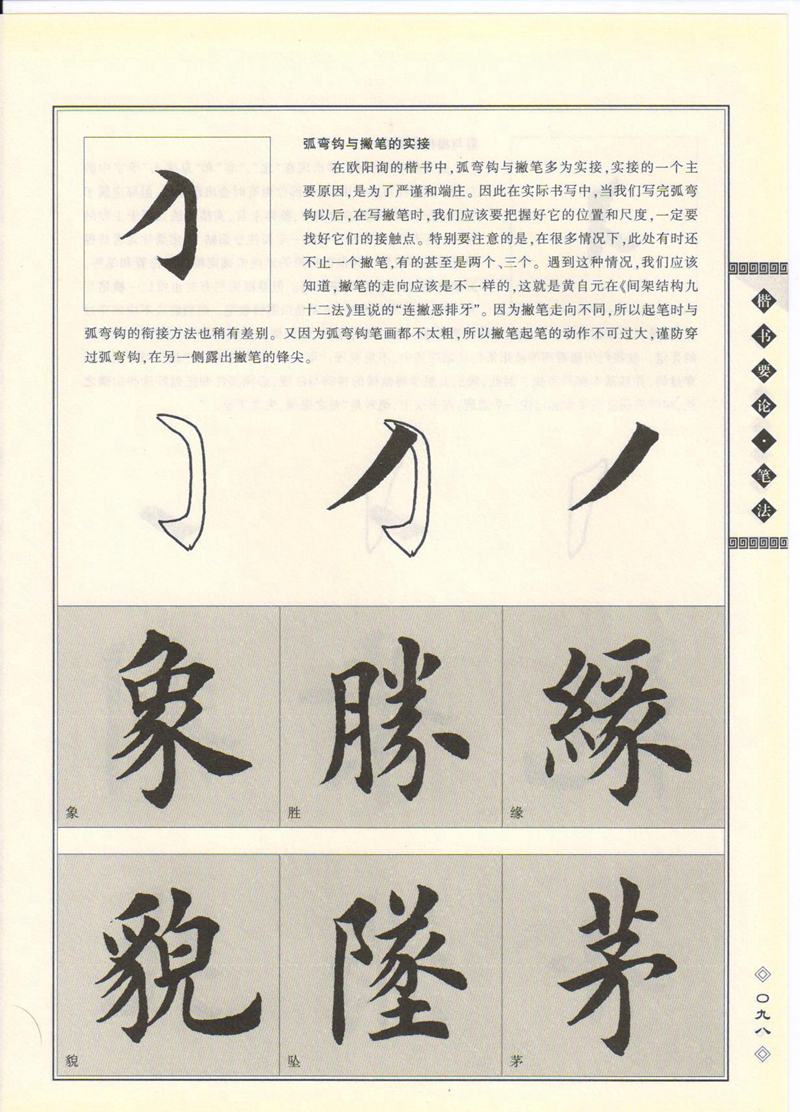 弧弯钩与撇笔的实接
在欧阳询的楷书中，弧弯钩与撇笔多为实接，实接的一个主
要原因，是为了严谨和端庄。因此在实际书写中，当我们写完弧弯
钩以后，在写撇笔时，我们应该要把握好它的位置和尺度，一定要
找好它们的接触点。特别要注意的是，在很多情况下，此处有时还
不止一个撇笔，有的甚至是两个、三个。遇到这种情况，我们应该
知道，撇笔的走向应该是不一样的，这就是黄自元在《间架结构九
十二法》里说的“连撇恶排牙”。因为撇笔走向不同，所以起笔时与
弧弯钩的衔接方法也稍有差别。又因为弧弯钩笔画都不太粗，所以撇笔起笔的动作不可过大，谨防穿
过弧弯钩，在另一侧露出撇笔的锋尖。
象
勝
緣
象
胜
缘
貌
墜
茅
貌
坠
茅
楷书要论·笔法
〇九八